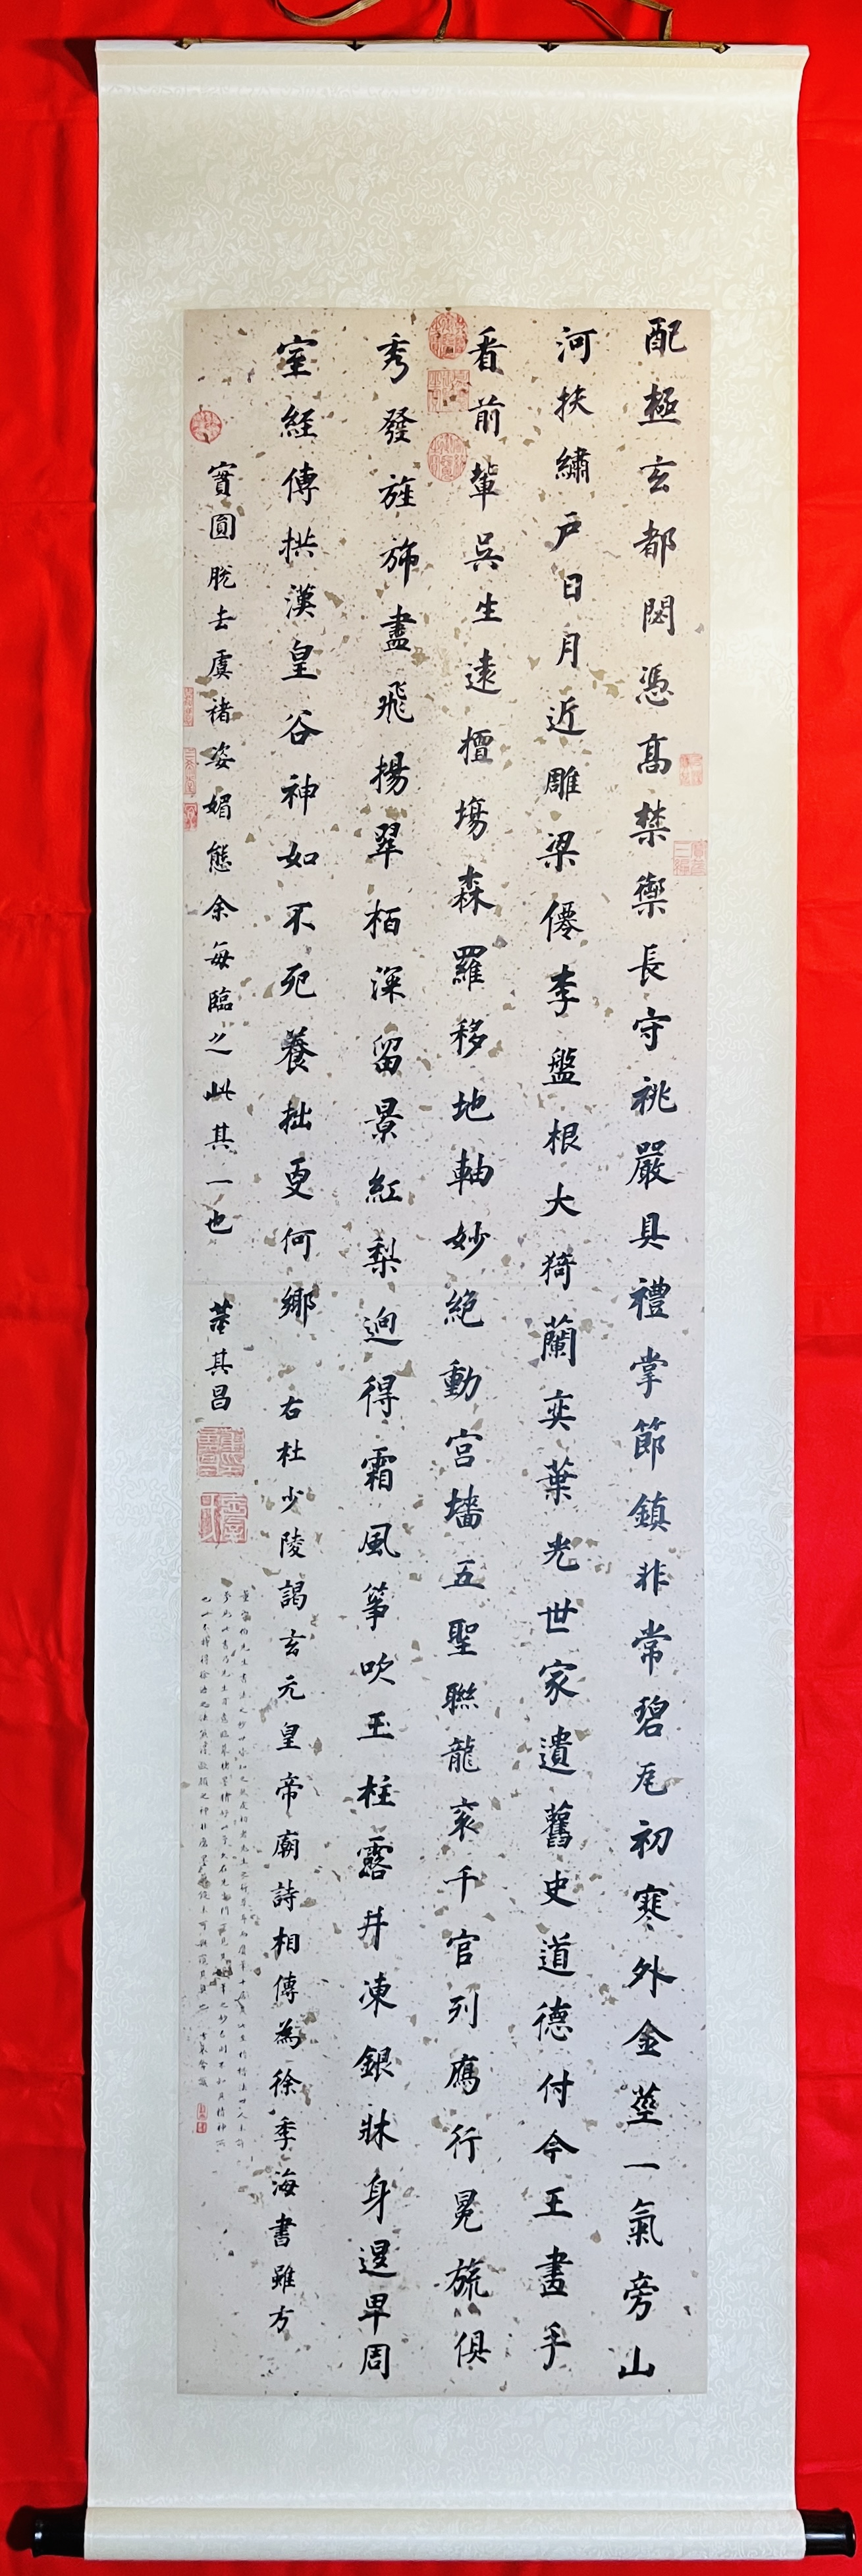 配極玄都閟憑高禁禦長守祧嚴具禮掌節鎮非常碧瓦初寒外金莖一氣旁山
河扶繡戶日月近雕梁僊李盤根大猗蘭奕葉光世家遺舊史道德付今王畫手
看前輩吳生遠擅塲森羅移地軸妙絕動宮墻五聖聯龍衮千官列鴈行冕旒俱
秀發旌斾盡飛揚翠栢深留景紅梨迥得霜風箏吹玉柱露井凍銀牀身退卑周
室經傳拱漢皇谷神如不死養拙更何鄉 右杜少陵謁玄元皇帝廟詩相傳為徐季海書雖方
實圓脫去虞褚姿媚態余每臨之此其一也 董其昌